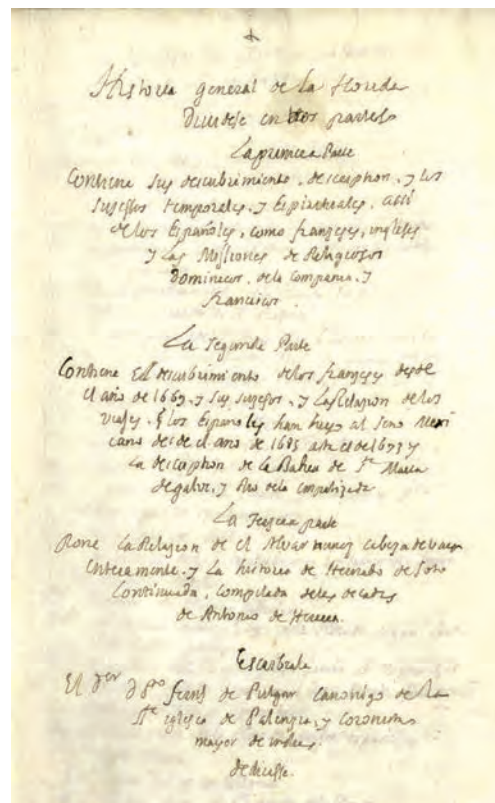 Historia general de la florida
Diuidese en dos partes
La primera Parte
Contiene sus descubrimiento, descriphon, y los
sugessos temporales, y Espirituales, assi
de los Españoles, como françeses, ingleses
y Las Missiones de Religiosos
Dominicos, dela Compania, y
franciscos.
La segunda Parte
Contiene El descubrimiento delos françeses desde
el año de 1669. y sus sugessos, y La Relazion de los
viages, q̃ los Españoles han hecho al seno Mexi
cano desde el año de 1685 asta el de 1693 y
La descriphon de la Bahia de Sta Maria
degalve, y Rio dela empalizada
La Tercera parte
Pone La Relazion de el Alvar nunez cabeza de vaca
enteramente. y La historia de Hernando de soto
Continuada, compilada delas decadas
de Antonio de Herrera.
Escribela
El Dor D Po Frnz de Pulgar canonigo de la
Sta iglesia de Palenzia, y coronista
mayor de indias.